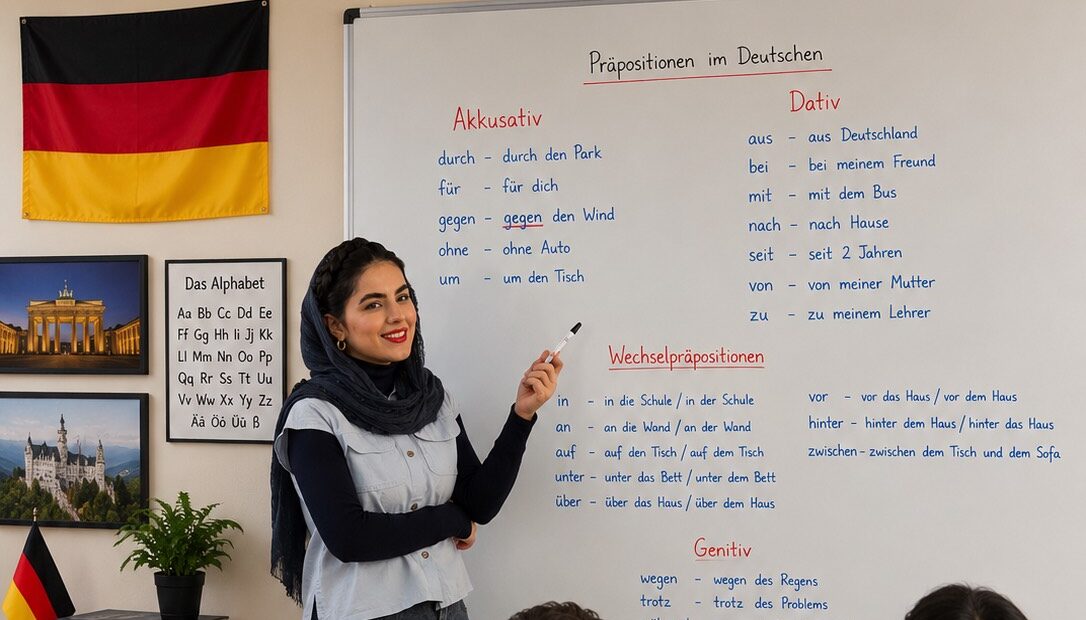 Präpositionen im Deutschen
Akkusativ
durch - durch den Park
für - für dich
gegen - gegen den Wind
ohne - ohne Auto
um - um den Tisch
Dativ
aus - aus Deutschland
bei - bei meinem Freund
mit - mit dem Bus
nach - nach Hause
seit - seit 2 Jahren
von - von meiner Mutter
zu - zu meinem Lehrer
Wechselpräpositionen
in - in die Schule / in der Schule
an - an die Wand / an der Wand
auf - auf den Tisch / auf dem Tisch
unter - unter das Bett / unter dem Bett
über - über das Haus / über dem Haus
vor - vor das Haus / vor dem Haus
hinter - hinter dem Haus / hinter das Haus
zwischen - zwischen dem Tisch und dem Sofa
Genitiv
wegen - wegen des Regens
trotz - trotz des Problems
Das Alphabet
Aa Bb Cc Dd Ee
Ff Gg Hh Ii Jj Kk
Ll Mm Nn Oo Pp
Qq Rr Ss Tt Uu
Vv Ww Xx Yy Zz
Ää Öö Üü ß